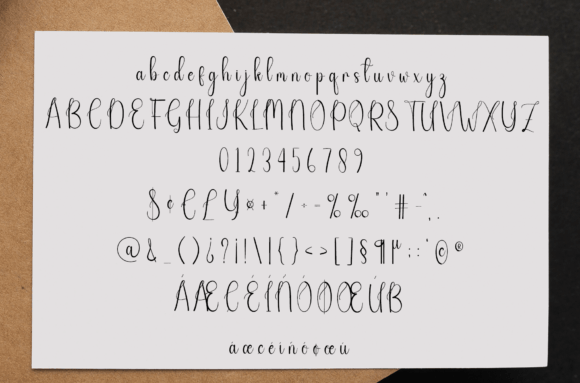 abcdefghijklmnopqrstuvwxyz
ABCDEFGHIJKLMNOPQRSTUVWXYZ
0123456789
$¢€£¥¤+°/÷=%‰"'#-ˆ,.
@&_()¿?¡!\|{}<>[]§¶µ:;'©®
ÁÆÇÉÍÑÓØŒÚß
áæçéíñóøœú